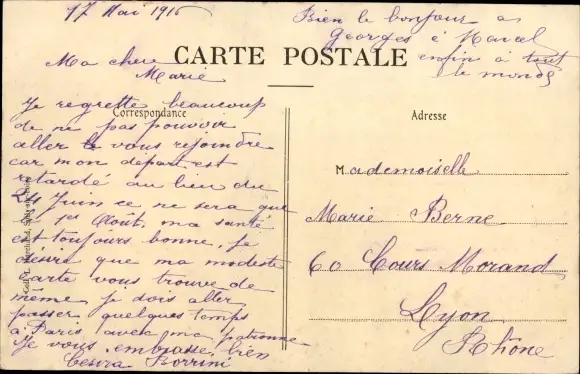 17 Mai 1916
Bien le bonjour a
Georges é Marcel
enfin à tout
le monde
CARTE POSTALE
Ma chere
Marie
Correspondance
Je regrette beaucoup
de ne pas pouvoir
aller le vous rejoindre
car mon départ est
retardé au lieu du
24 Juin ce ne sera que
le 1er Août, ma santé
est toujours bonne, je
désire que ma modeste
carte vous trouve de
meme je dois aller
passer quelques temps
a Paris avec ma patronne
Je vous embrasse bien
Cesira Borrini
Adresse
Mademoiselle
Marie Berne
60 Cours Morand
Lyon
Rhône